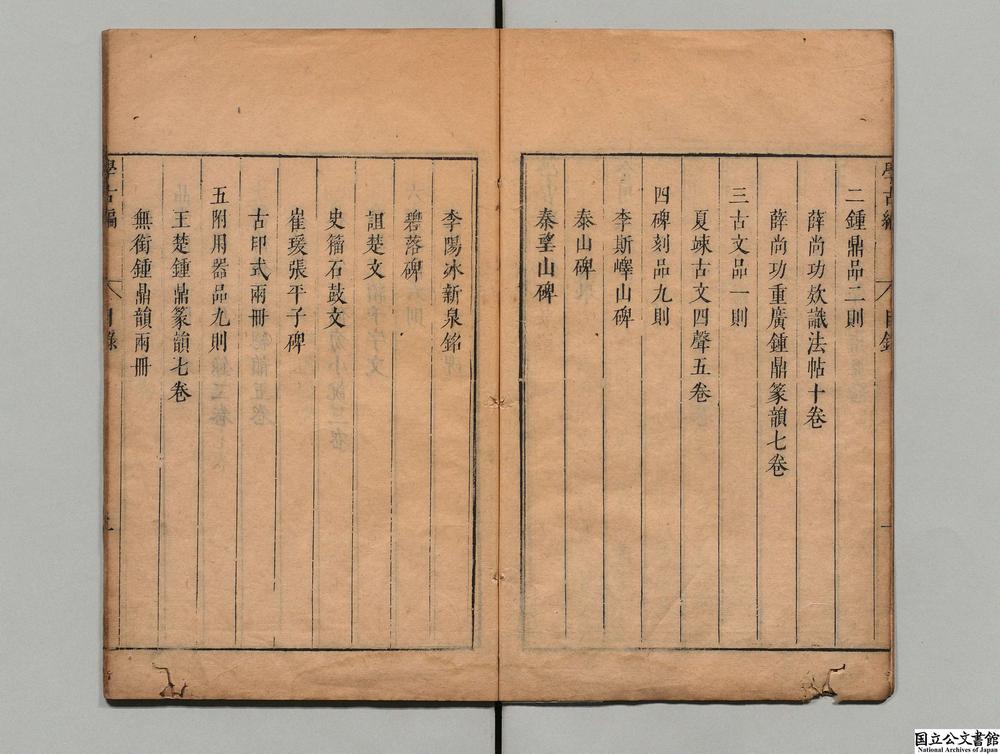 二鍾鼎品二則
薛尚功欵識法帖十卷
薛尚功重廣鍾鼎篆韻七卷
三古文品一則
夏竦古文四聲五卷
四碑刻品九則
李斯嶧山碑
泰山碑
秦望山碑
李陽冰新泉銘
碧落碑
詛楚文
史籀石鼓文
崔瑗張平子碑
古印式兩冊
五附用器品九則
王楚鍾鼎篆韻七卷
無銜鍾鼎韻兩冊
學古編
目錄
国立公文書館
National Archives of Japan